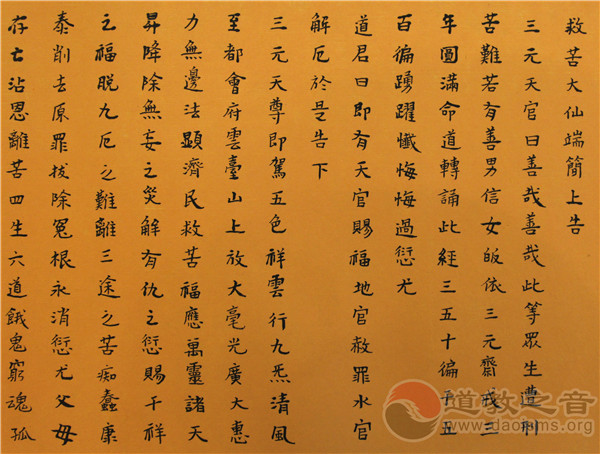 救苦大仙端簡上告
三元天官曰善哉善哉此等眾生遭利
苦難若有善男信女皈依三元齋戒三
年圓滿命道轉誦此經三五十徧千五
百徧踴躍懺悔悔過愆尤
道君曰即有天官賜福地官赦罪水官
解厄於是告下
三元天尊即駕五色祥雲行九炁清風
至都會府雲臺山上放大毫光廣大惠
力無邊法顯濟民救苦福應萬靈諸天
昇降除無妄之災解有仇之愆賜千祥
之福脫九厄之難離三途之苦痴蠢康
泰削去原罪拔除冤根永消愆尤父母
存亡沾恩離苦四生六道餓鬼窮魂孤
道教之音
www.daoisms.org